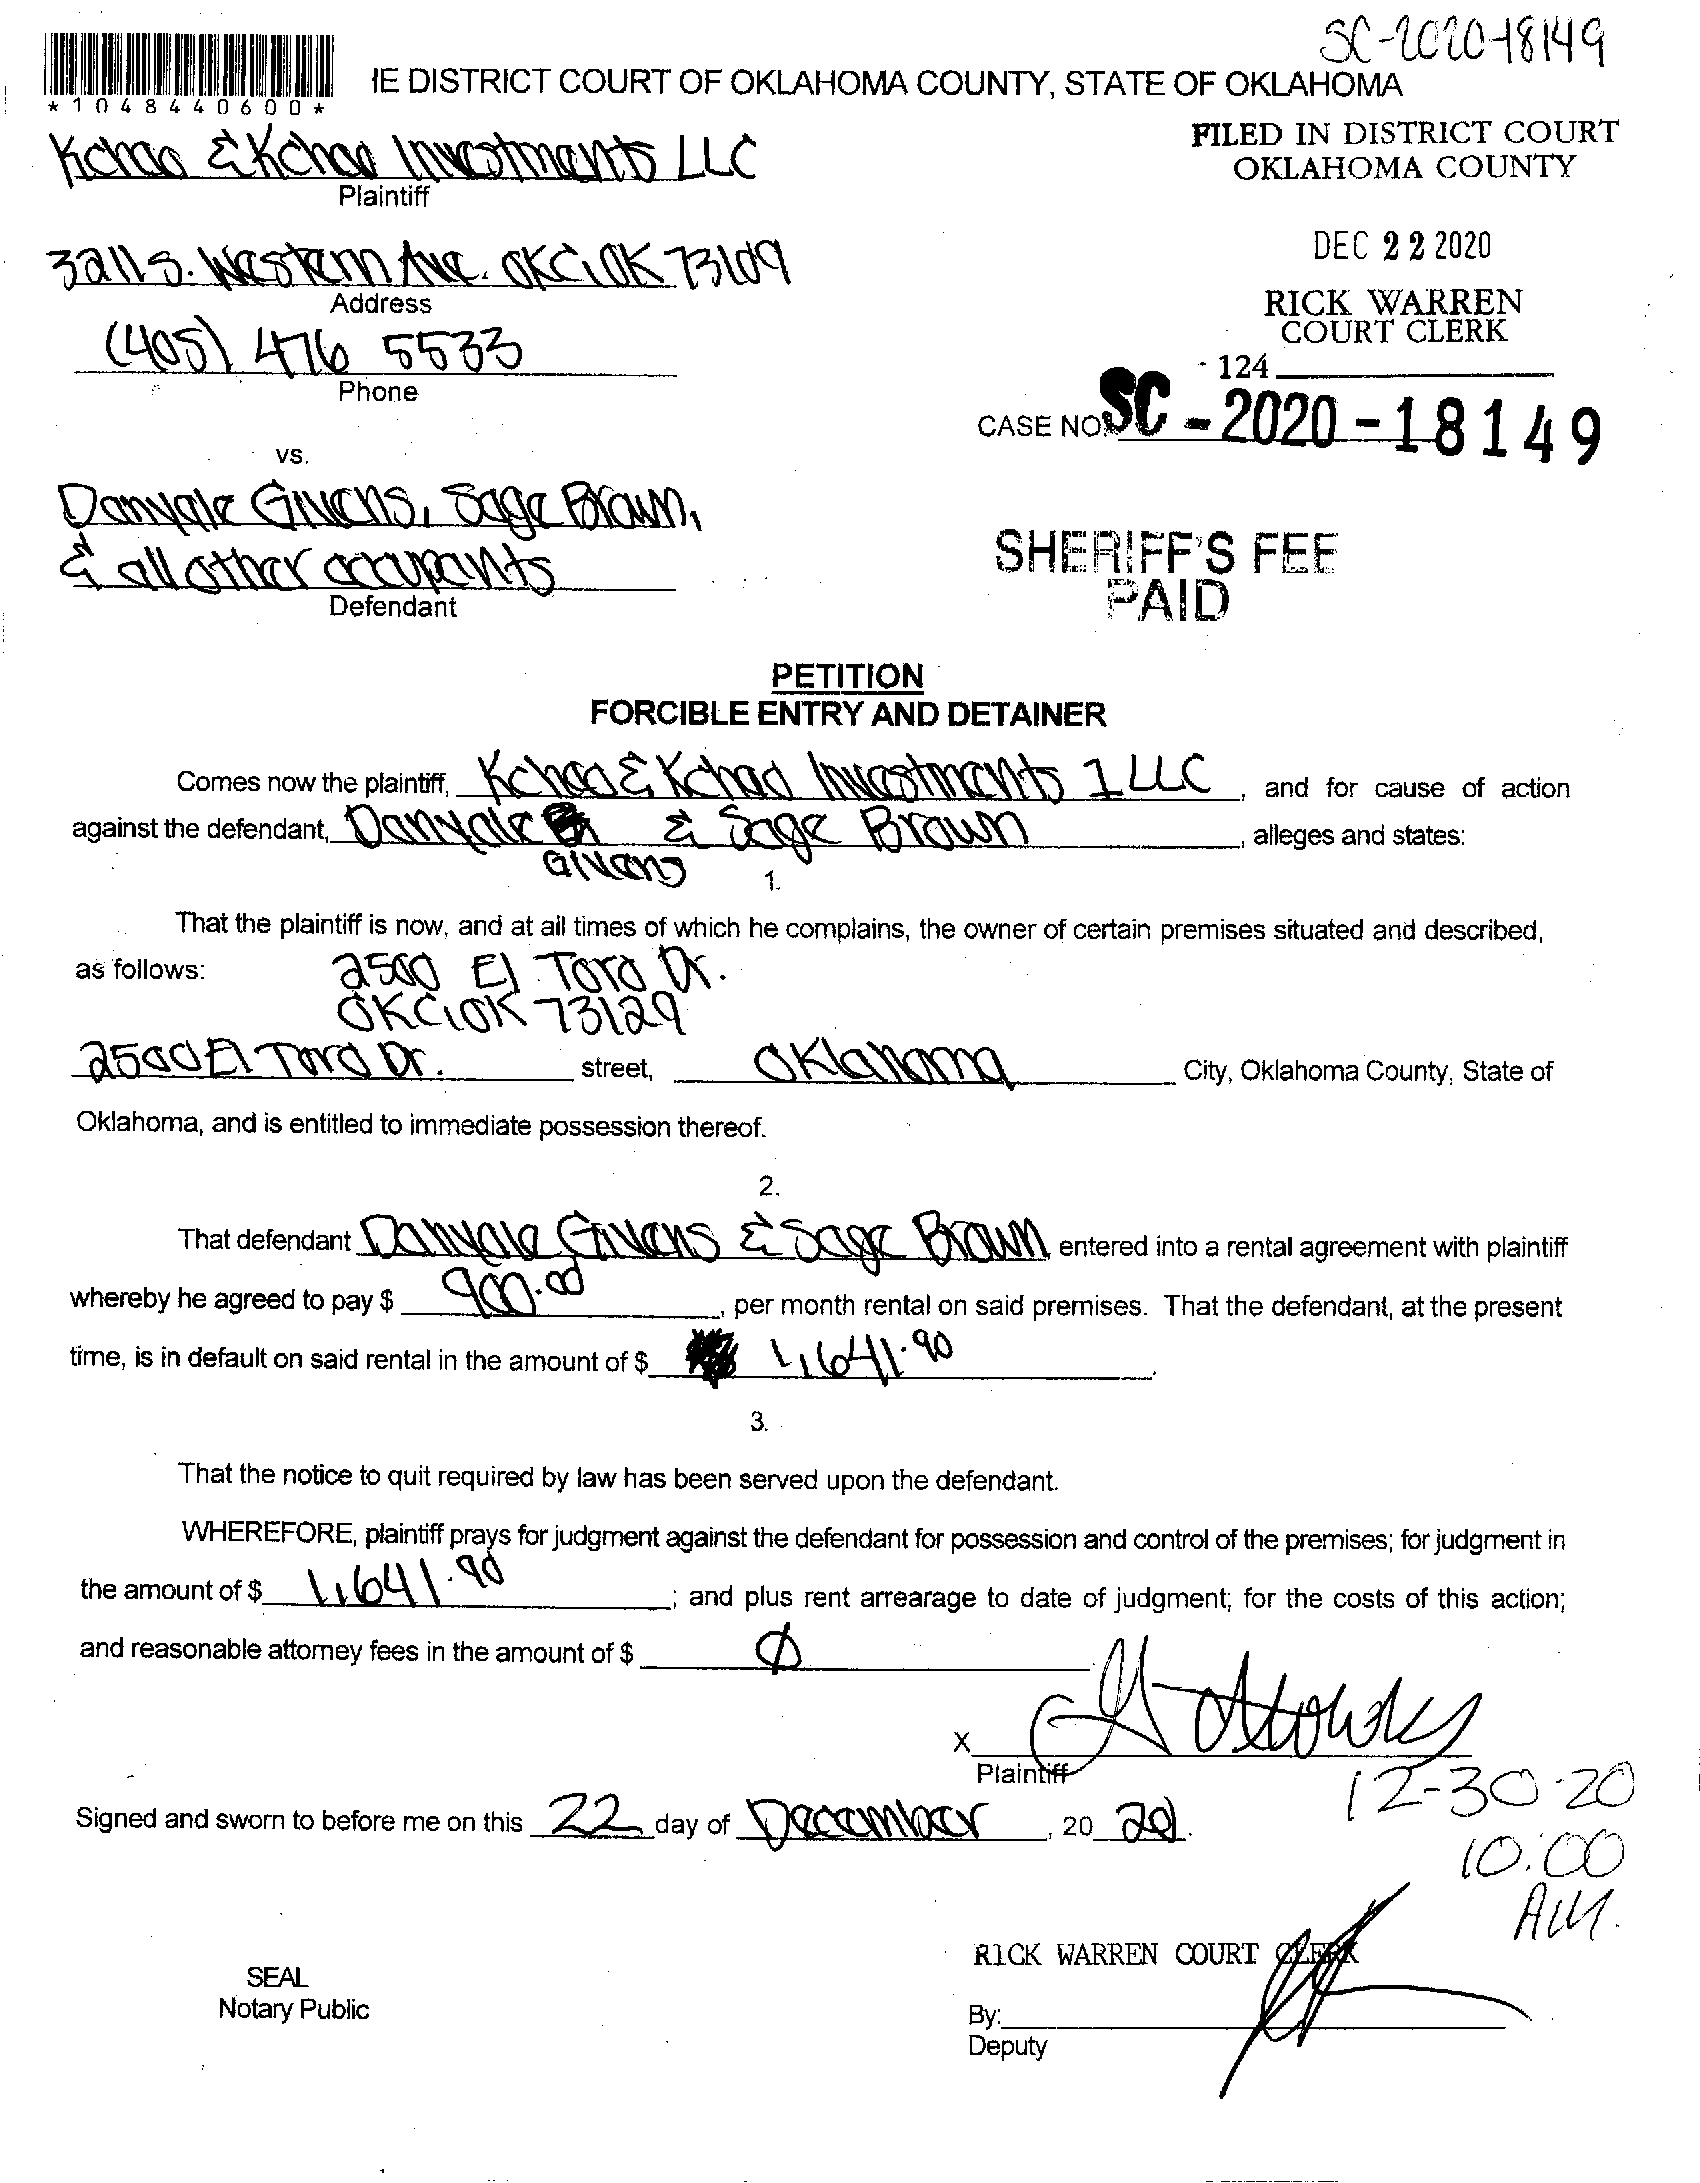 SC-2020-18149
*1048440600*
IE DISTRICT COURT OF OKLAHOMA COUNTY, STATE OF OKLAHOMA
FILED IN DISTRICT COURT
OKLAHOMA COUNTY
Kchao & Kchao Investments LLC
Plaintiff
DEC 22 2020
3211 S. Western Ave. OKC, OK 73109
Address
RICK WARREN
COURT CLERK
(405) 476 5533
Phone
124
CASE NO. SC-2020-18149
vs.
Danyale Givens, Sage Brown,
& all other occupants
Defendant
SHERIFF'S FEE
PAID
PETITION
FORCIBLE ENTRY AND DETAINER
Comes now the plaintiff, Kchao & Kchao Investments 1 LLC, and for cause of action
against the defendant, Danyale & Sage Brown, alleges and states:
Givens
1.
That the plaintiff is now, and at all times of which he complains, the owner of certain premises situated and described,
as follows: 2500 El Toro Dr.
OKC, OK 73129
2500 El Toro Dr. street, Oklahoma City, Oklahoma County, State of
Oklahoma, and is entitled to immediate possession thereof.
2.
That defendant Danyale Givens & Sage Brown entered into a rental agreement with plaintiff
whereby he agreed to pay $ 900.00, per month rental on said premises. That the defendant, at the present
time, is in default on said rental in the amount of $ 1,641.90.
3.
That the notice to quit required by law has been served upon the defendant.
WHEREFORE, plaintiff prays for judgment against the defendant for possession and control of the premises; for judgment in
the amount of $ 1,641.90; and plus rent arrearage to date of judgment; for the costs of this action;
and reasonable attorney fees in the amount of $ Ø
X
Plaintiff
12-30-20
Signed and sworn to before me on this 22 day of December, 20 20.
10:00
AM.
RICK WARREN COURT CLERK
SEAL
Notary Public
By:
Deputy